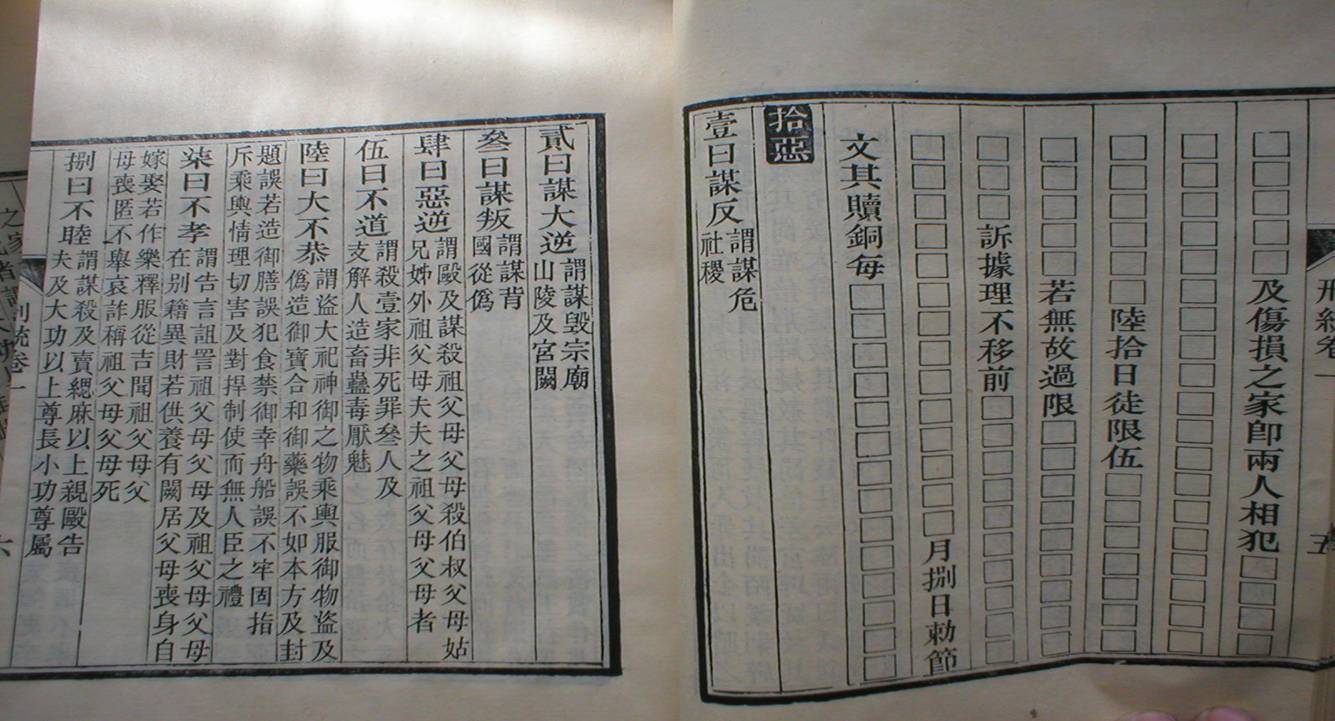 刑統卷一
五
□□□□□及傷損之家卽兩人相犯□□□□
□□□□□□□□□□□□□□□□□□□
□□□□□□陸拾日徒限伍□□□□□□□
□□□□□若無故過限□□□□□□□□□
□□□訴據理不移前□□□□□□□□□□
□□□□□□□□□□□□□□月捌日勅節
文其贖銅每□□□□□□□□□□□□□□
拾惡
壹曰謀反
謂謀危
社稷
貳曰謀大逆
謂謀毀宗廟
山陵及宮闕
叄曰謀叛
謂謀背
國從僞
肆曰惡逆
謂毆及謀殺祖父母父母殺伯叔父母姑
兄姊外祖父母夫夫之祖父母父母者
伍曰不道
謂殺壹家非死罪叄人及
支解人造畜蠱毒厭魅
陸曰大不恭
謂盜大祀神御之物乘輿服御物盜及
僞造御寶合和御藥誤不如本方及封
題誤若造御膳誤犯食禁御幸舟船誤不牢固指
斥乘輿情理切害及對捍制使而無人臣之禮
柒曰不孝
謂告言詛詈祖父母父母及祖父母父母
在别籍異財若供養有闕居父母喪身自
嫁娶若作樂釋服從吉聞祖父母父
母喪匿不舉哀詐稱祖父母父母死
捌曰不睦
謂謀殺及賣緦麻以上親毆告
夫及大功以上尊長小功尊屬
刑統卷一
六